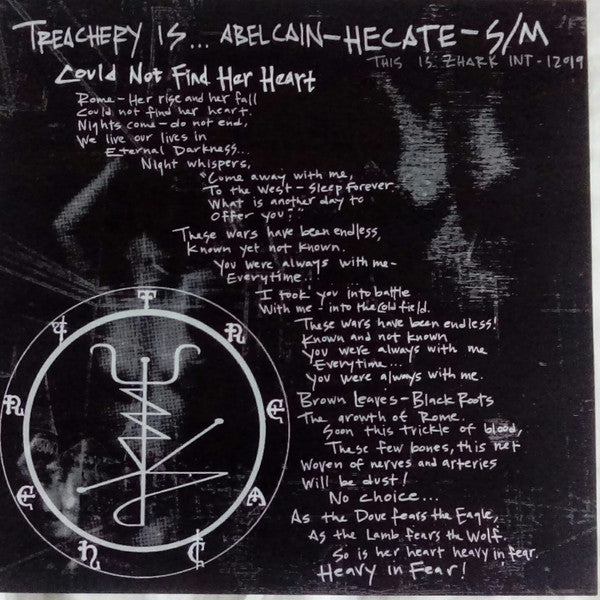 TREACHERY IS... ABELCAIN-HECATE-S/M
THIS IS ZHARK INT-12019
Could Not Find Her Heart
Rome-Her rise and her fall
Could not find her heart.
Nights come-do not end,
We live our lives in
Eternal Darkness...
Night whispers,
"Come away with me,
To the West-Sleep forever-
What is another day to
Offer you?"
These wars have been endless,
Known yet not known.
You were always with me-
Everytime...
I took you into battle
With me-into the cold field.
These wars have been endless!
Known and not known
You were always with me
Everytime...
You were always with me.
Brown Leaves-Black Roots
The growth of Rome.
Soon this trickle of blood,
These few bones, this net
Woven of nerves and arteries
Will be dust!
No choice...
As the Dove fears the Eagle,
As the Lamb fears the Wolf.
So is her heart heavy in fear.
Heavy in Fear!
T R E A C H E R Y